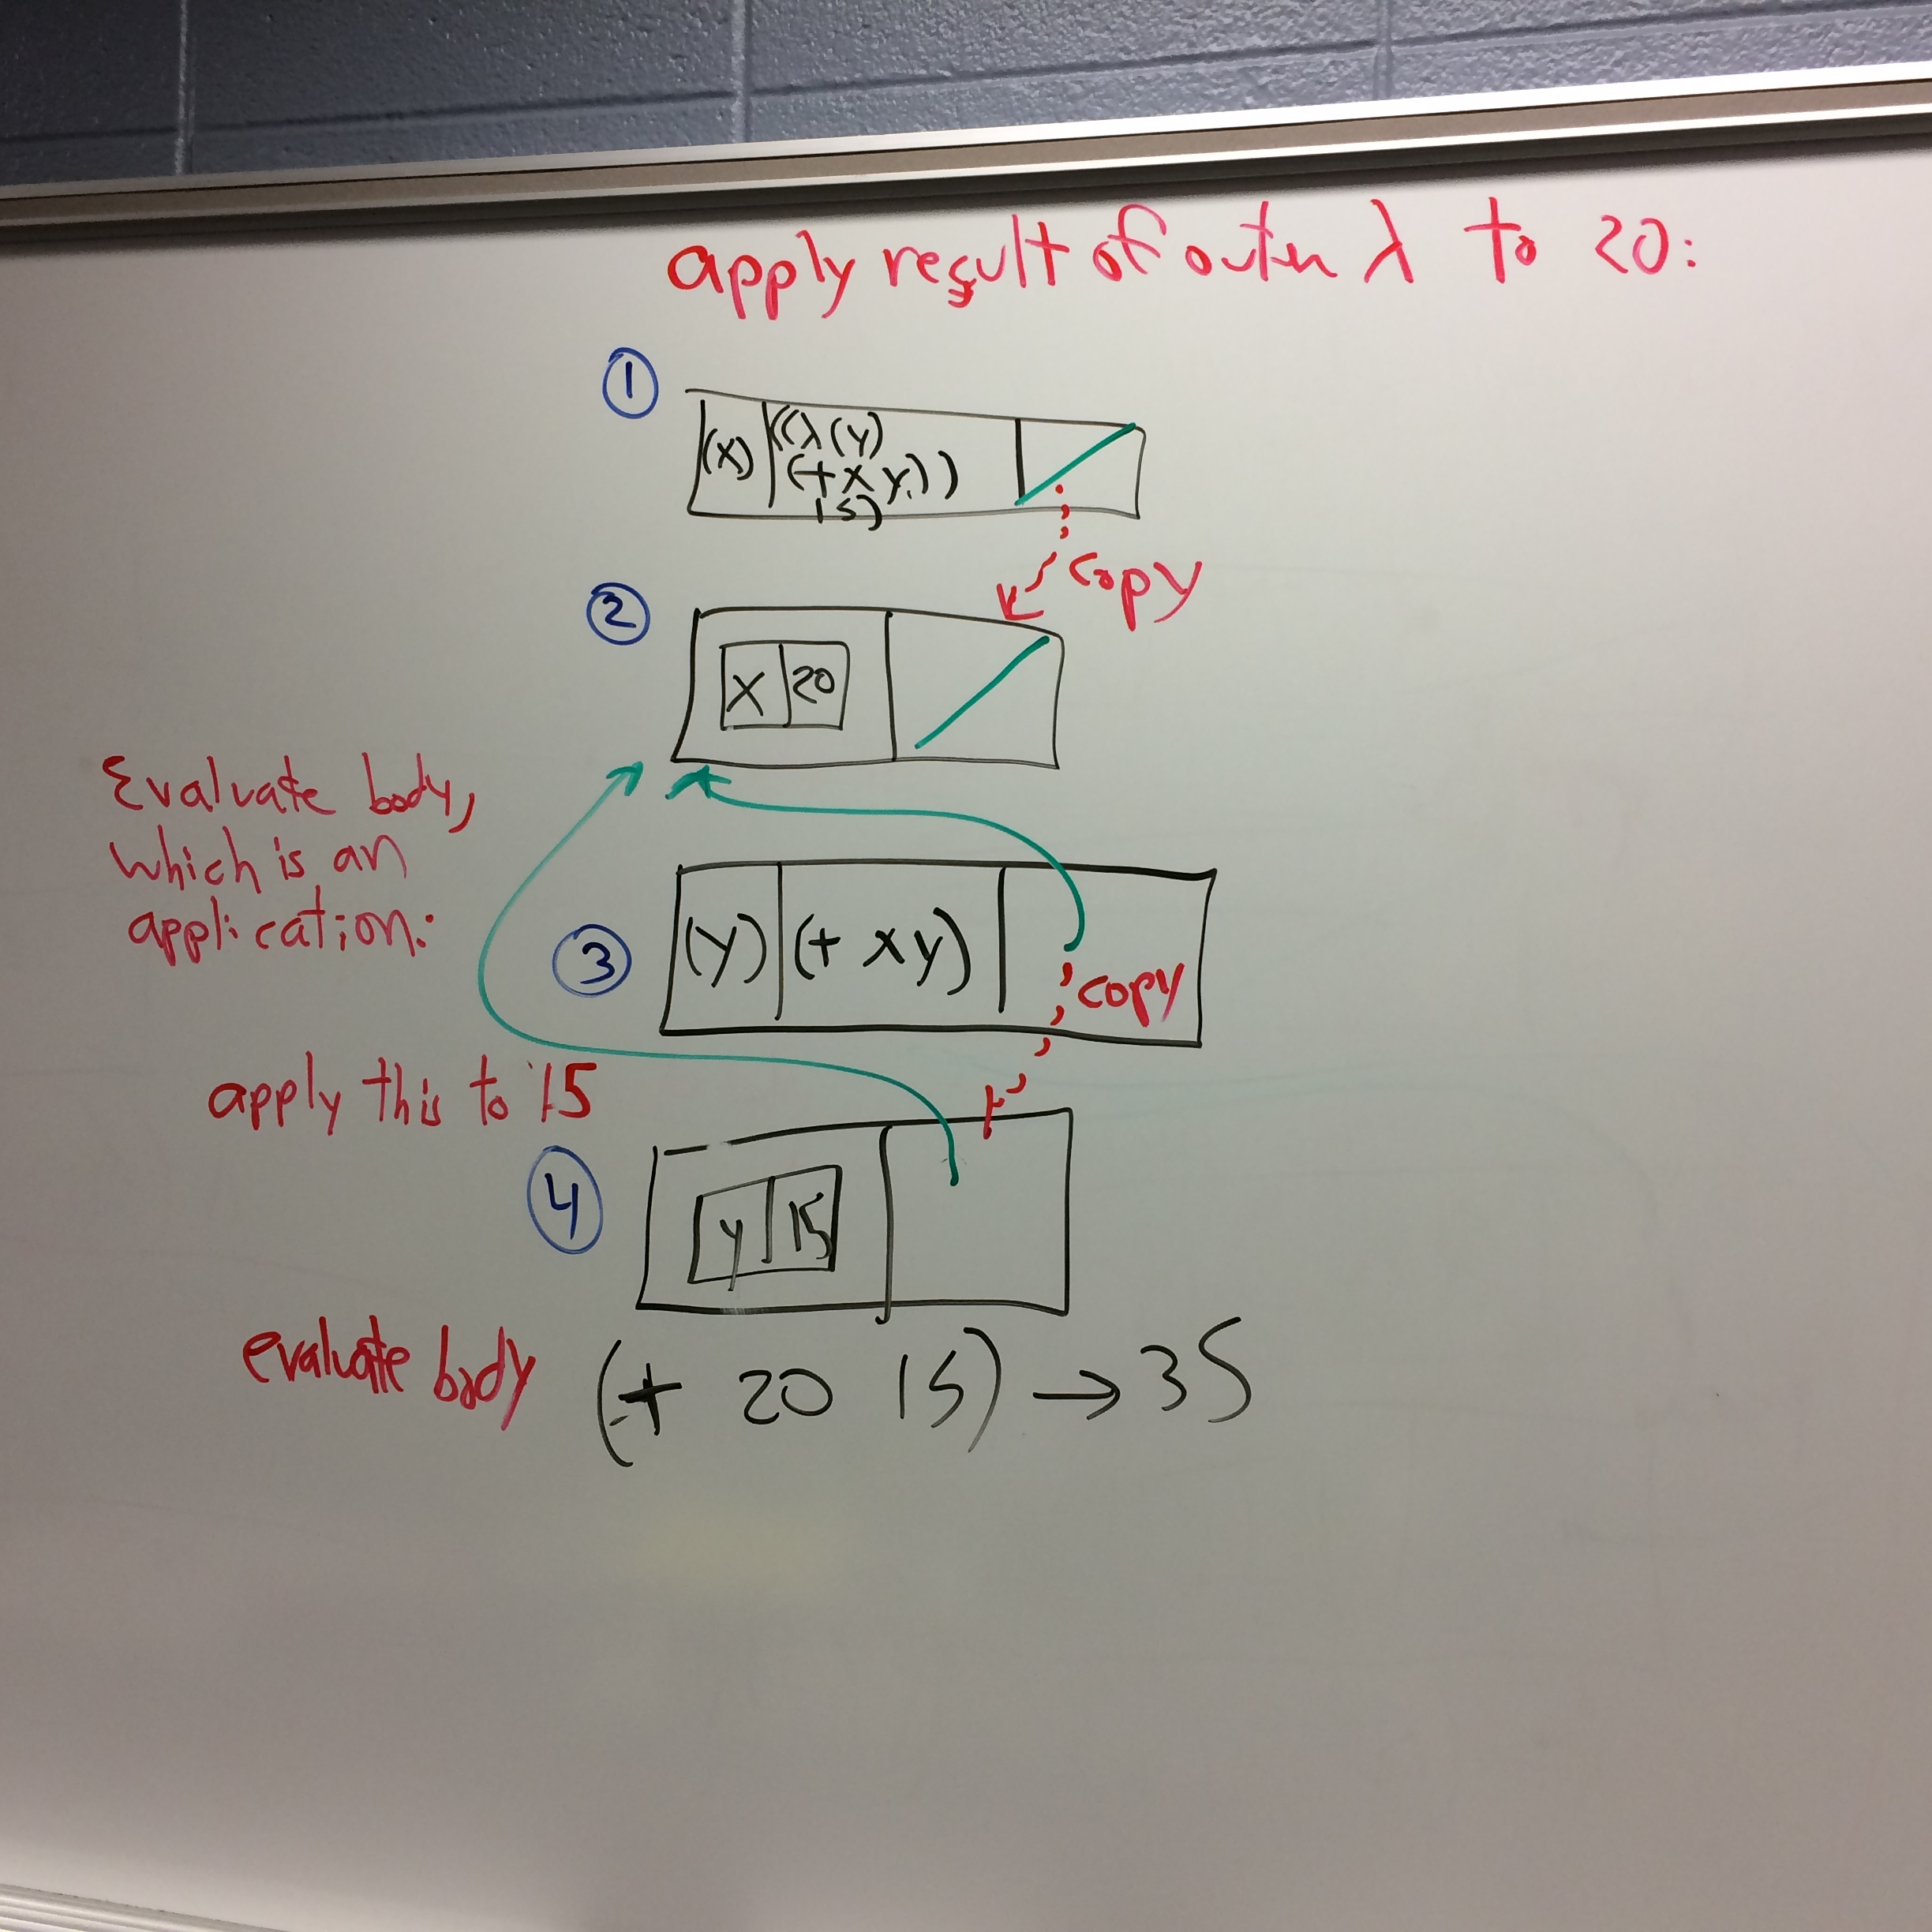 apply result of outer λ to 20:
1
(x) ((λ (y)
(+ x y))
15)
copy
2
x 20
Evaluate body,
which is an
application:
3
(y) (+ x y)
copy
apply this to 15
4
y 15
evaluate body (+ 20 15) → 35